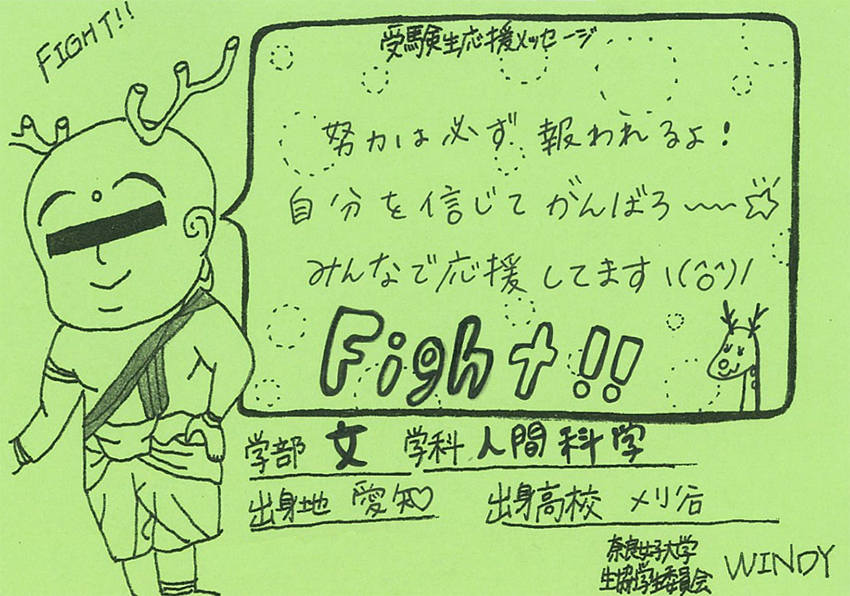 FIGHT!!
受験生応援メッセージ
努力は必ず報われるよ!
自分を信じてがんばろ〜〜☆
みんなで応援してます\(^o^)/
Fight!!
学部 文 学科 人間科学
出身地 愛知♡ 出身高校 刈谷
奈良女子大学
生協学生委員会 WINDY